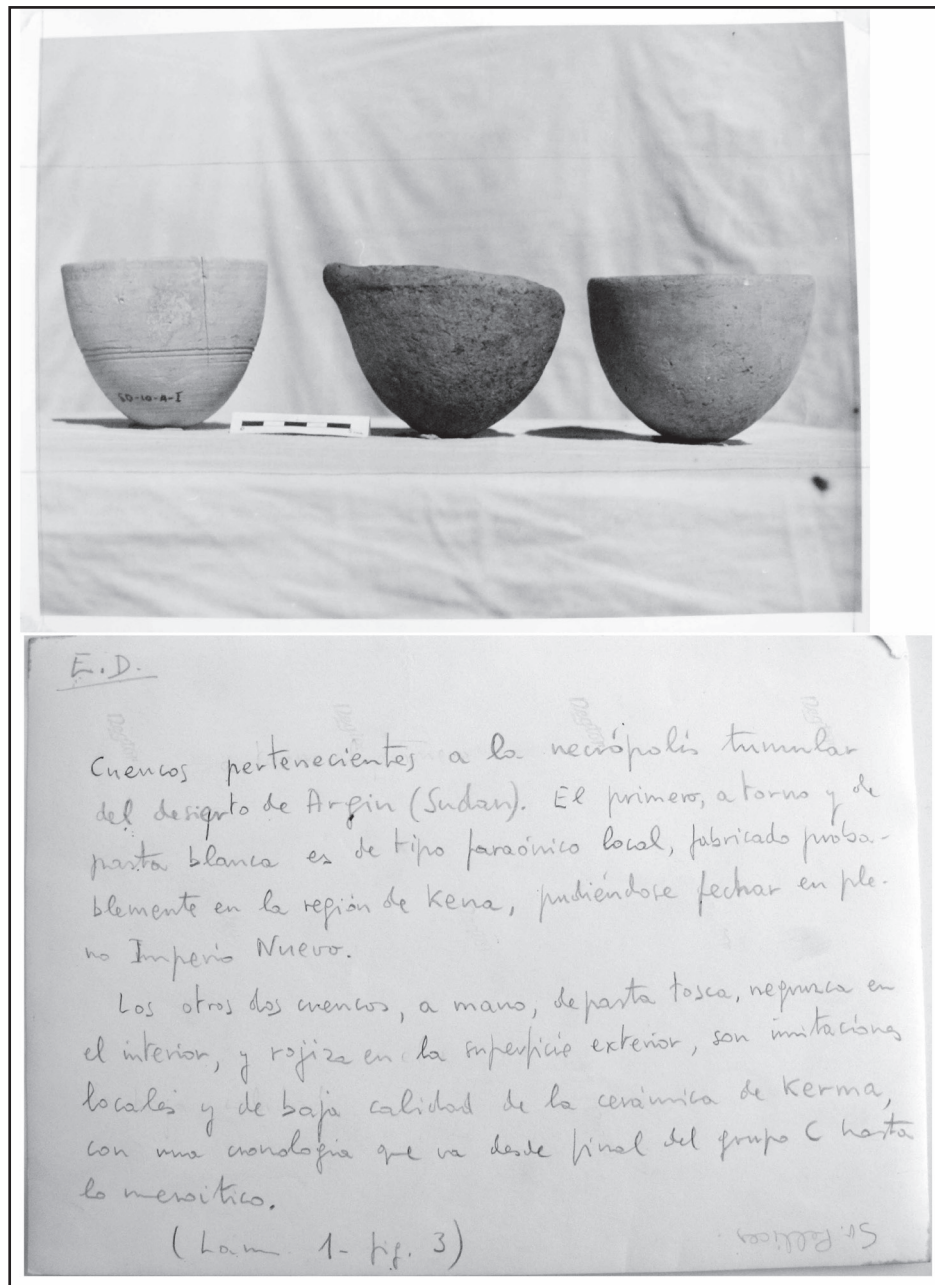 SD-10-A-I
E.D.
Cuencos pertenecientes a la necrópolis tumular
del desierto de Argin (Sudan). El primero, a torno y de
pasta blanca es de tipo faraónico local, fabricado proba-
blemente en la región de Kena, pudiéndose fechar en ple-
no Imperio Nuevo.
Los otros dos cuencos, a mano, de pasta tosca, negruzca en
el interior, y rojiza en la superficie exterior, son imitaciones
locales y de baja calidad de la cerámica de Kerma,
con una cronologia que va desde final del grupo C hasta
lo meroitico.
(Lam 1- fig. 3)
Sr. Pellicer